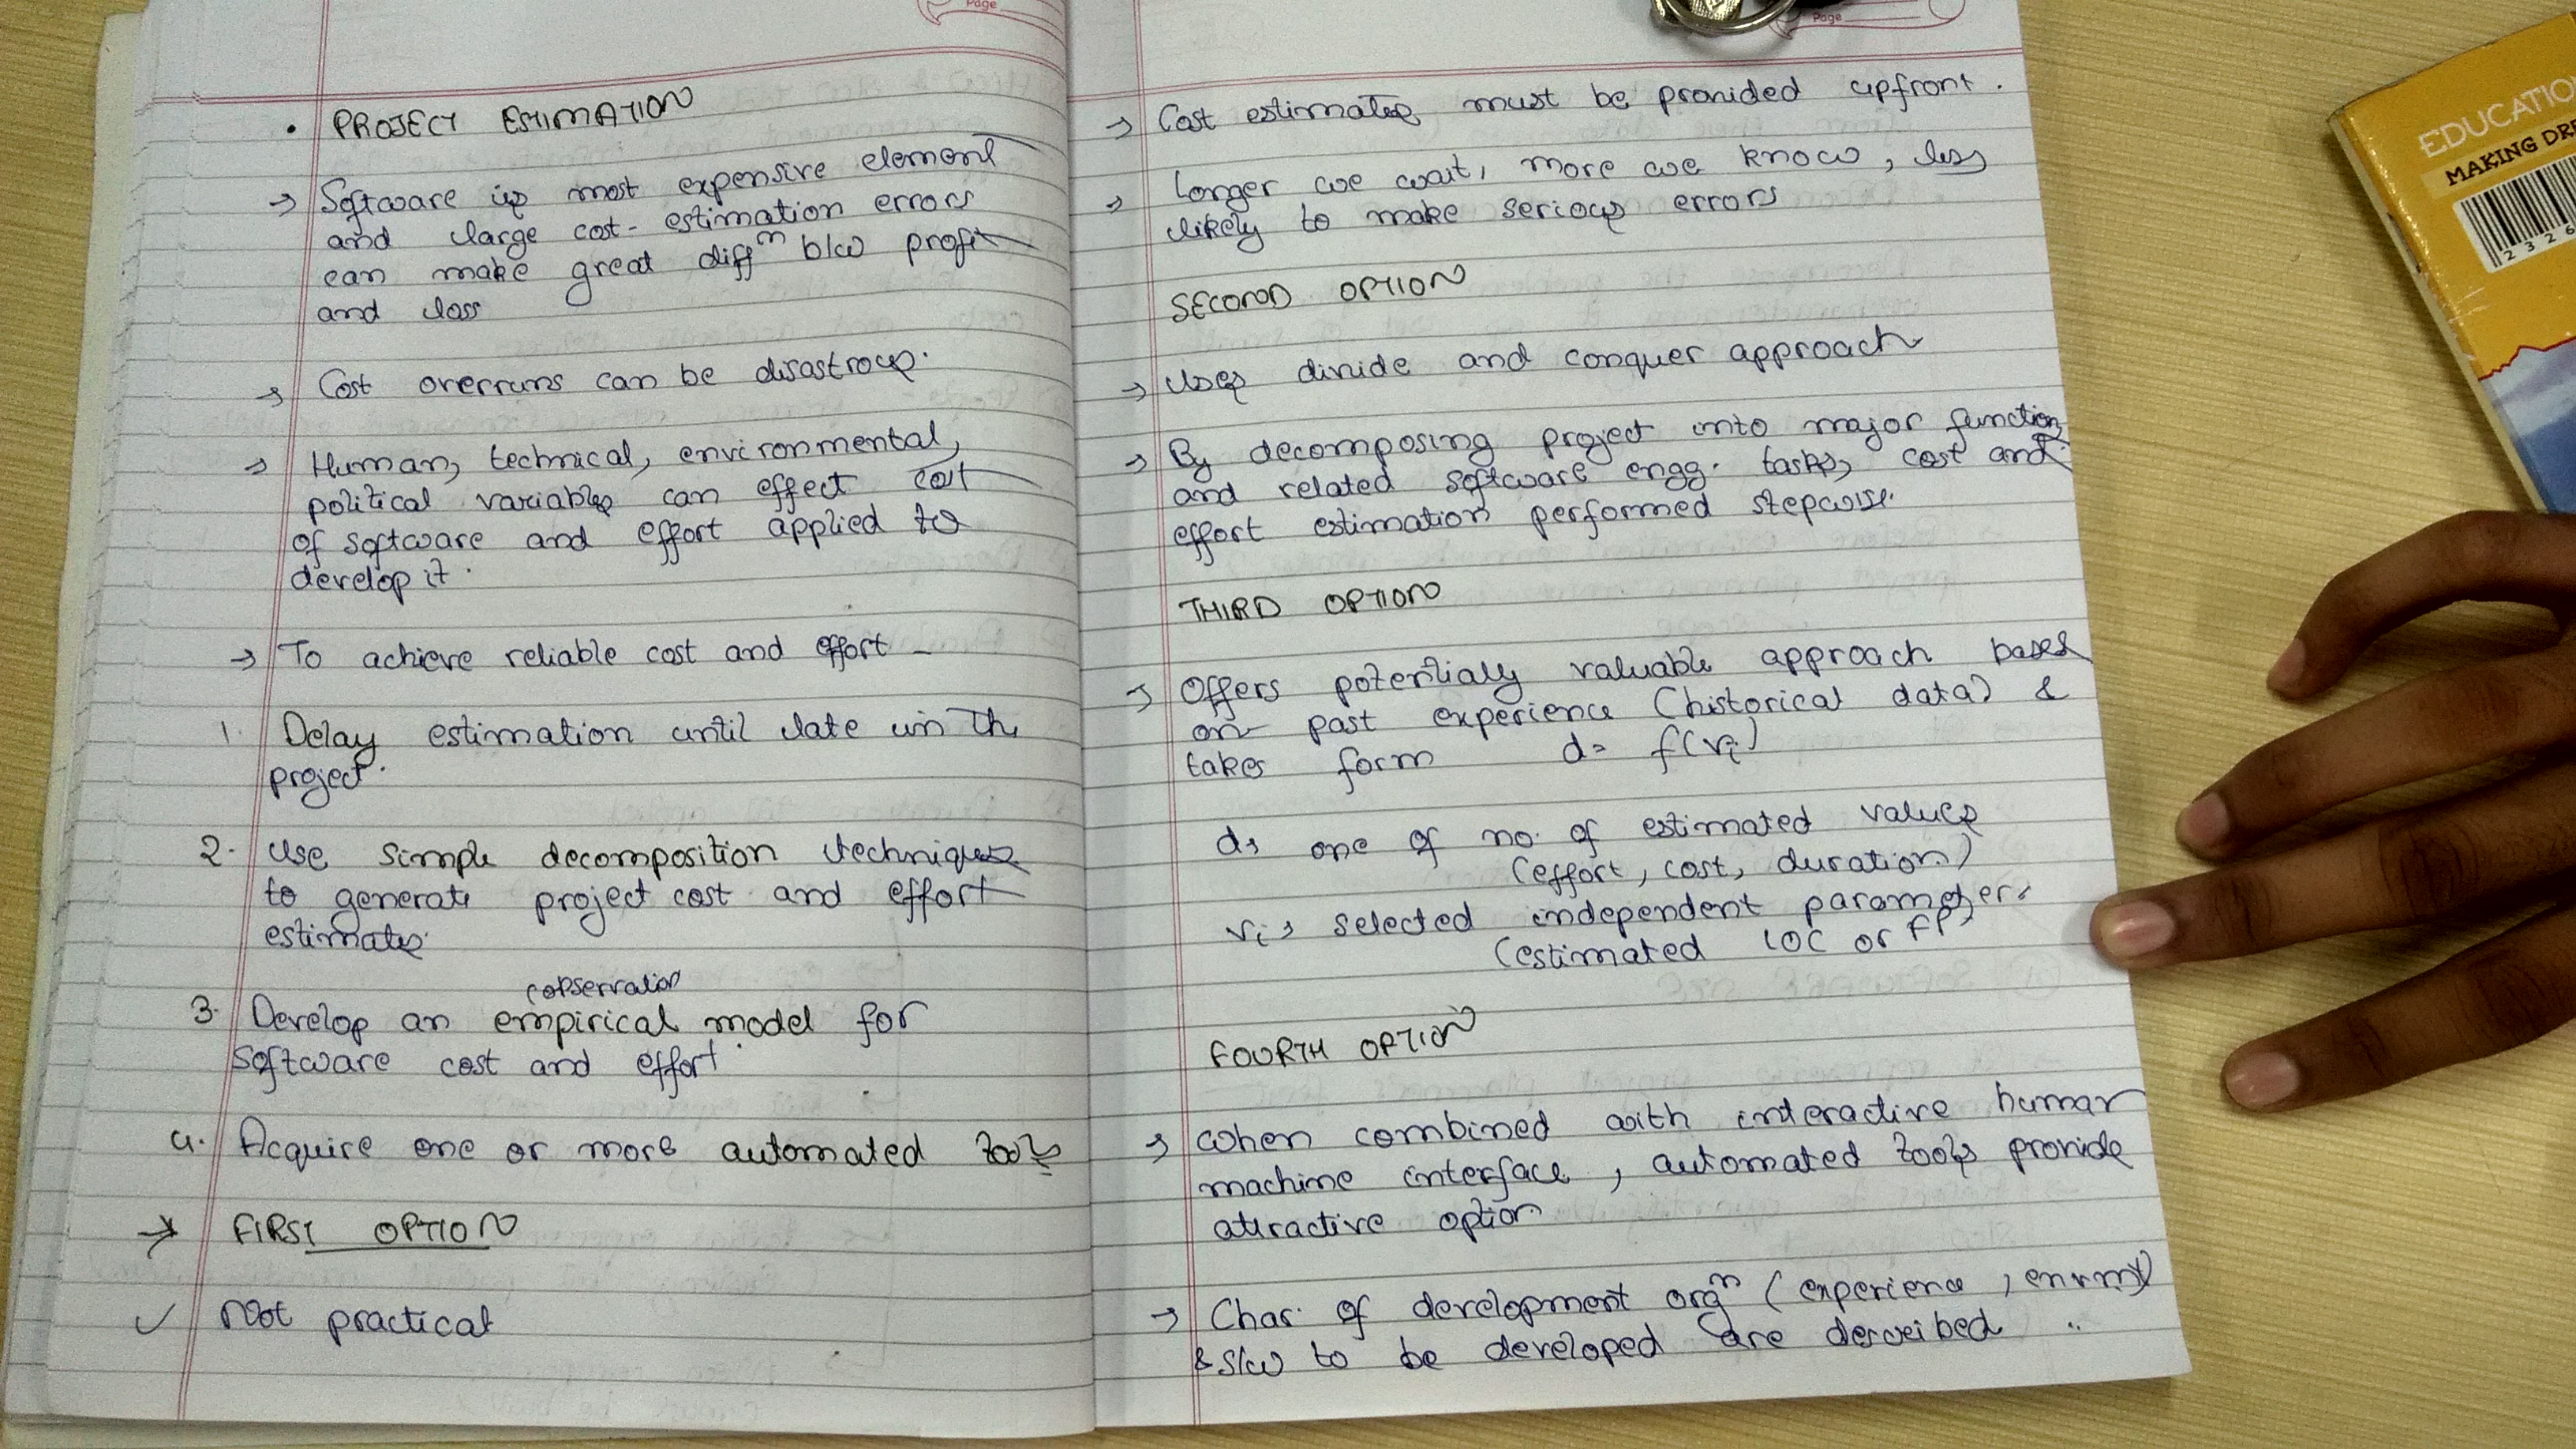 Page
• PROJECT ESTIMATION
→ Software is most expensive element
and large cost-estimation errors
can make great diffⁿ b/w profit
and loss
→ Cost overruns can be disastrous.
→ Human, technical, environmental,
political variables can effect cost
of software and effort applied to
develop it.
→ To achieve reliable cost and effort -
1. Delay estimation until late in the
project.
2. Use simple decomposition techniques
to generate project cost and effort
estimates.
(observation
3. Develop an empirical model for
software cost and effort.
4. Acquire one or more automated tools
→ FIRST OPTION
✓ Not practical
Page
→ Cost estimates must be provided upfront.
→ Longer we wait, more we know, less
likely to make serious errors
SECOND OPTION
→ Uses divide and conquer approach
→ By decomposing project into major function
and related software engg. tasks, cost and
effort estimation performed stepwise.
THIRD OPTION
→ Offers potentialy valuable approach based
on past experience (historical data) &
takes form d= f(vi)
d → one of no. of estimated values
(effort, cost, duration)
vi → selected independent parameters
(estimated LOC or FP)
FOURTH OPTION
→ When combined with interactive human
machine interface, automated tools provide
attractive option
→ Char. of development orgⁿ (experience, envrmt)
& s/w to be developed are described.
EDUCATIO
MAKING DRE
2 3 2 6